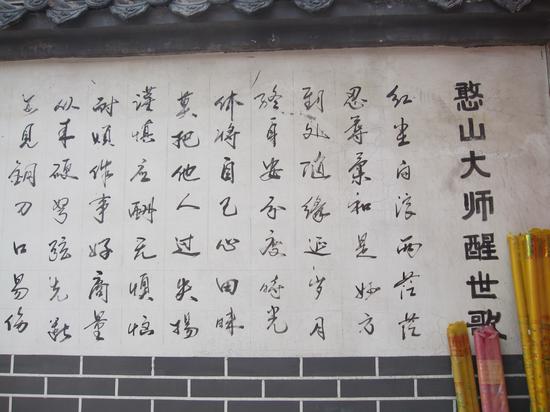 憨山大师醒世歌
红尘白浪两茫茫
忍辱柔和是妙方
到处随缘延岁月
终身安分度时光
休将自己心田昧
莫把他人过失扬
谨慎应酬无懊恼
耐烦作事好商量
从来硬弩弦先断
岂見鋼刀口易伤